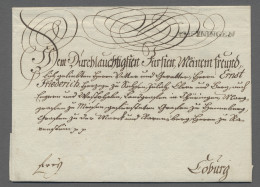 Dem Durchlauchtigsten Fürsten Meinem freundl.
geliebten Herrn Vetter und Gevatter, Herrn Ernst
Friederich, Herzoge zu Sachsen, Jülich, Cleve und Berg, auch
Engern und Westphalen, Landgrafen in Thüringen, Marg-
grafen zu Meißen, gefürsteten Grafen zu Henneberg,
Grafen zu der Marck und Ravensberg, Herrn zu Ra-
venstein
frey
Coburg